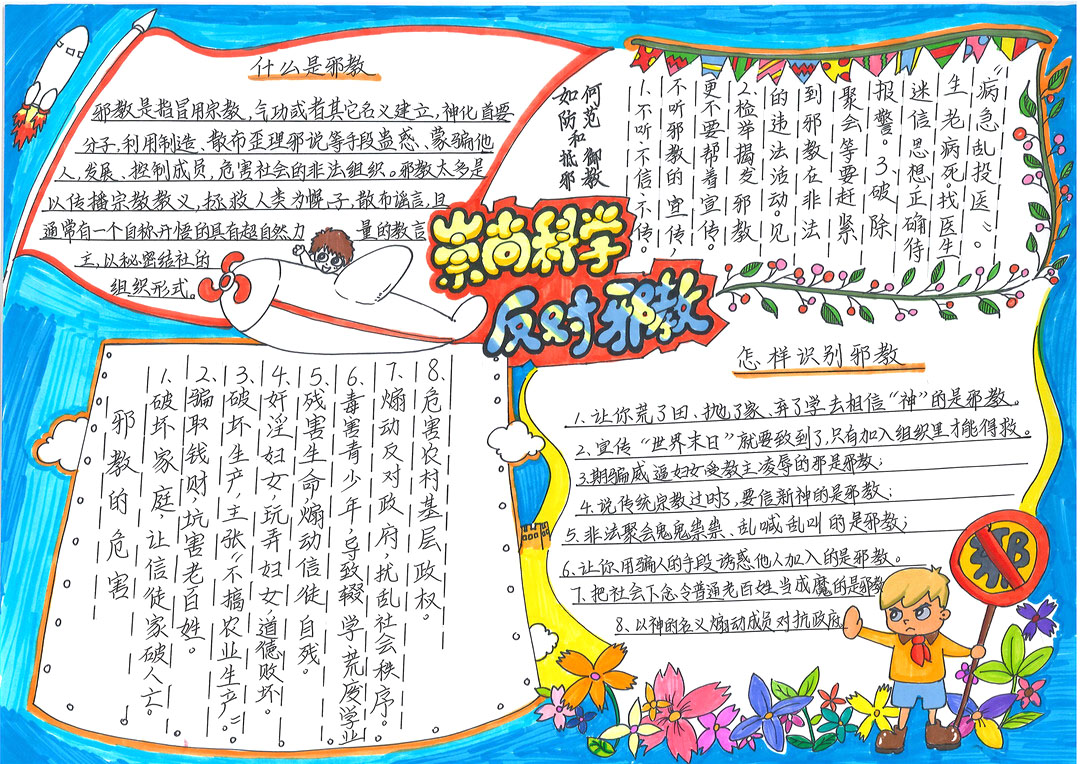 什么是邪教
邪教是指冒用宗教、气功或者其它名义建立,神化首要
分子,利用制造、散布歪理邪说等手段蛊惑、蒙骗他
人,发展、控制成员,危害社会的非法组织。邪教太多是
以传播宗教教义,拯救人类为幌子,散布谣言,且
通常有一个自称开悟的具有超自然力量的教言
主,以秘密结社的
组织形式。
崇尚科学
反对邪教
如何防范和抵御邪教
1.不听、不信、不传。
不听邪教的宣传,
更不要帮着宣传。
2.检举揭发邪教
的违法活动。见
到邪教在非法
聚会等要赶紧
报警。3.破除
迷信思想正确待
生老病死。找医生
“病急乱投医”。
邪教的危害
1.破坏家庭,让信徒家破人亡。
2.骗取钱财,坑害老百姓。
3.破坏生产,主张“不搞农业生产”
4.奸淫妇女,玩弄妇女,道德败坏。
5.残害生命煽动信徒自残。
6.毒害青少年,导致辍学荒废学业
7.煽动反对政府,扰乱社会秩序。
8.危害农村基层政权。
怎样识别邪教
1.让你荒了田、抛了家、弃了学去相信“神”的是邪教。
2.宣传“世界末日”就要致到了,只有加入组织里才能得救。
3.期骗威逼妇女受教主凌辱的那是邪教;
4.说传统宗教过时了,要信新神的是邪教;
5.非法聚会鬼鬼祟祟、乱喊乱叫的是邪教;
6.让你用骗人的手段诱惑他人加入的是邪教。
7.把社会下念令普通老百姓当成魔的是邪教
8.以神的名义煽动成员对抗政府
邪